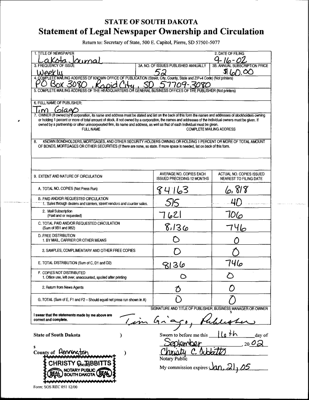 STATE OF SOUTH DAKOTA
Statement of Legal Newspaper Ownership and Circulation
Return to: Secretary of State, 500 E. Capitol, Pierre, SD 57501-5077
1. TITLE OF NEWSPAPER 2. DATE OF FILING
Lakota Journal 9-16-02
3. FREQUENCY OF ISSUE 3A. NO. OF ISSUES PUBLISHED ANNUALLY 3B. ANNUAL SUBSCRIPTION PRICE
Weekly 52 $60.00
4. COMPLETE MAILING ADDRESS OF KNOWN OFFICE OF PUBLICATION (Street, City, County, State and ZIP+4 Code) (Not printers)
PO Box 3080 Rapid City, SD 57709-3080
5. COMPLETE MAILING ADDRESS OF THE HEADQUARTERS OR GENERAL BUSINESS OFFICES OF THE PUBLISHER (Not printers)
6. FULL NAME OF PUBLISHER:
Tim Giago
7. OWNER (If owned by corporation, its name and address must be stated and also on the back of this form the names and addresses of stockholders owning
or holding 1 percent or more of total amount of stock. If not owned by a corporation, the names and addresses of the individual owners must be given. If
owned by a partnership or other unincorporated firm, its name and address, as well as that of each individual must be given.
FULL NAME COMPLETE MAILING ADDRESS
8. KNOWN BONDHOLDERS, MORTGAGES, AND OTHER SECURITY HOLDERS OWNING OR HOLDING 1 PERCENT OR MORE OF TOTAL AMOUNT
OF BONDS, MORTGAGES OR OTHER SECURITIES (If there are none, so state. If more space is needed, list on back of this form.
9. EXTENT AND NATURE OF CIRCULATION AVERAGE NO. COPIES EACH ISSUED PRECEDING 12 MONTHS ACTUAL NO. COPIES ISSUED NEAREST TO FILING DATE
A. TOTAL NO. COPIES (Net Press Run) 84163 6,818
B. PAID AND/OR REQUESTED CIRCULATION
1. Sales through dealers and carriers, street vendors and counter sales 515 40
2. Mail Subscription
(Paid and or requested) 7621 706
C. TOTAL PAID AND/OR REQUESTED CIRCULATION
(Sum of 9B1 and 9B2) 8,136 746
D. FREE DISTRIBUTION
1. BY MAIL, CARRIER OR OTHER MEANS 0 0
2. SAMPLES, COMPLIMENTARY AND OTHER FREE COPIES 0 0
E. TOTAL DISTRIBUTION (Sum of C, D1 and D2) 8136 746
F. COPIES NOT DISTRIBUTED
1. Office use, left over, unaccounted, spoiled after printing 0 0
2. Return from News Agents 0 0
G. TOTAL (Sum of E, F1 and F2 - Should equal net press run shown in A) 0 0
SIGNATURE AND TITLE OF PUBLISHER, BUSINESS MANAGER OR OWNER
I swear that the statements made by me above are
correct and complete. Tim Giago, Publisher
State of South Dakota ) Sworn to before me this 16th day of
September 2002
County of Pennington ) Christy C. Tibbitts
Notary Public
CHRISTY C. TIBBITTS
NOTARY PUBLIC
SEAL SOUTH DAKOTA SEAL
My commission expires Jan. 21, 05